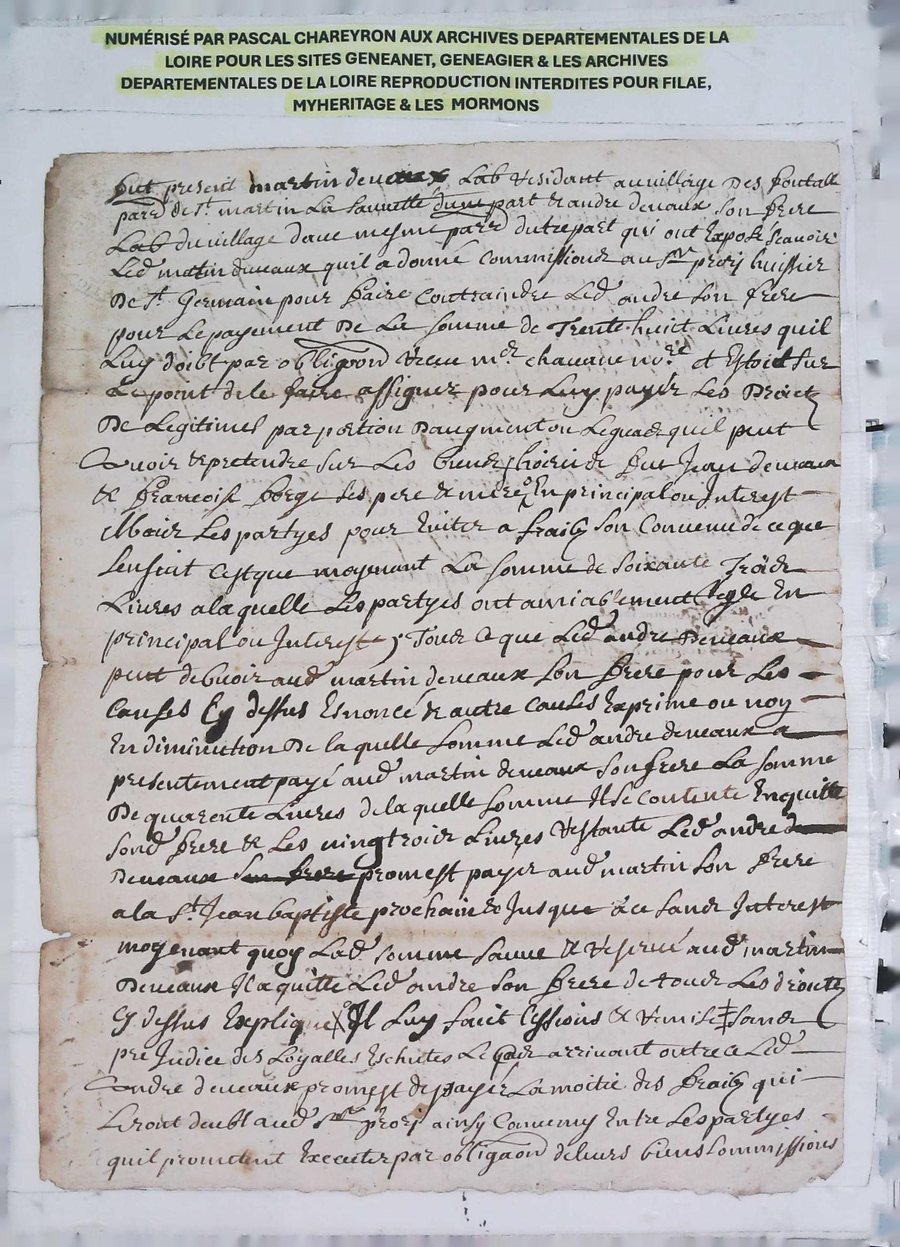 NUMÉRISÉ PAR PASCAL CHAREYRON AUX ARCHIVES DEPARTEMENTALES DE LA
LOIRE POUR LES SITES GENEANET, GENEAGIER & LES ARCHIVES
DEPARTEMENTALES DE LA LOIRE REPRODUCTION INTERDITES POUR FILAE,
MYHERITAGE & LES MORMONS
fut present martin devaux Lab residant au village Des
parr de St. martin La Sauveté d'une part & andre devaux son frere
Lab du village dave mesme parr dutre part qui ont Exposé scavoir
Led martin devaux quil a donné Commissions au Sr huissier
De St. Germain pour faire Contraindre Led andre son frere
pour Le payement De La somme de Trente huict Livres quil
Luy doibt par obligaon Receu me chavane nore et Estoit sur
Le point de le faire assigner pour Luy payer Les Droictz
De Legitimes par portion Daugment ou quil peut
avoir & pretendre sur Les biens & de fut Jean devaux
& francoise Borge ses pere & mere En principal ou Interest
Mais Les partyes pour Eviter a fraitz son Convenu de ce que
sensuit Cest que moyenant La somme de soixante Trois
Livres a laquelle Les partyes ont amiablement En
principal ou Interest, Tous Ce que Led andre Devaux
peut debvoir aud martin devaux son frere pour Les
Causes Cy dessus Esnoncé & autre Causes Exprime ou noy
En diminution De laquelle somme Led andre devaux a
presentement payé aud martin devaux son frere La somme
De quarente Livres de laquelle somme Il se contente En quitte
sond frere & Les vingtrois Livres Restante Led andre
Devaux son frere promest payer aud martin son frere
a la St. Jean baptiste prochain & Jusque a ce sans Interest
moyenant quoy Lad somme sauve & reservé aud martin
Devaux Il a quitté Led andre son frere de tous Les droictz
Cy dessus Expliqué Il Luy faict Cessions & remise sans
preJudice des Loyalles Eschutes Le cas arrivant outre ce Led
Andre devaux promest de payer La moitié des fraitz qui
seront deubt aud Sr ainsy Convenu Entre Les partyes
quil promettent Executer par obligaon de leurs biens sommissions